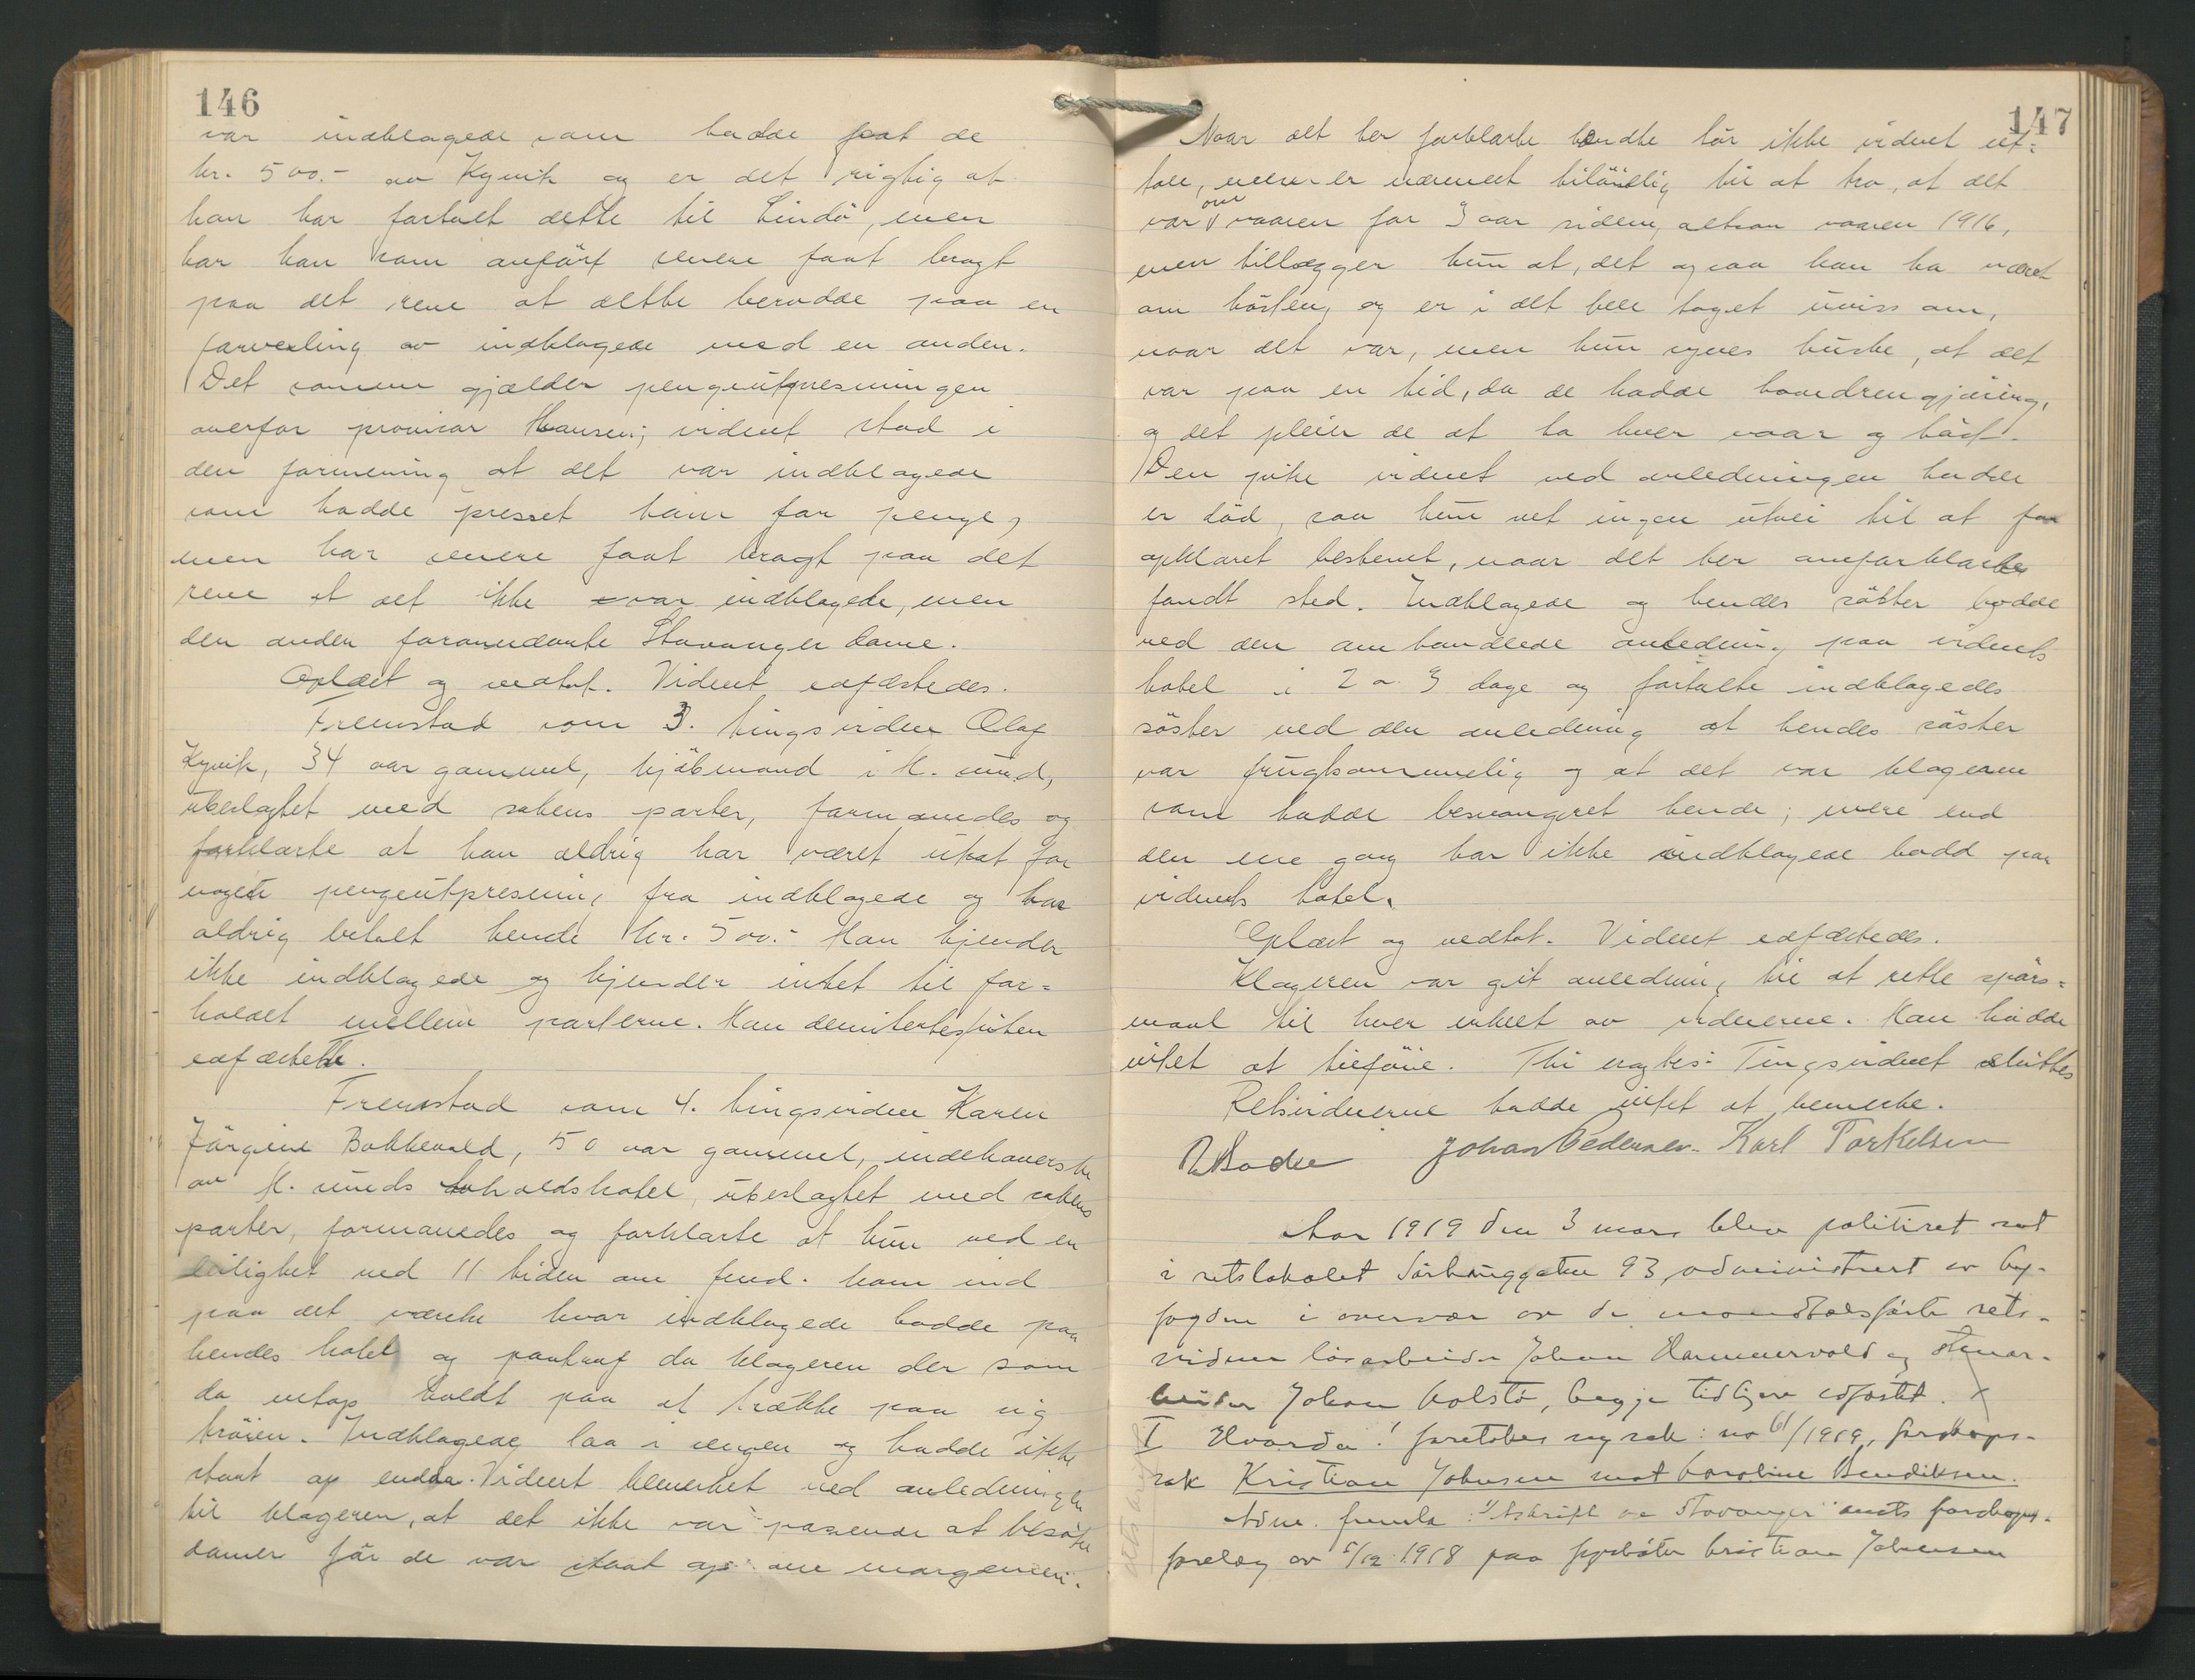 146
var indklagede som hadde faat de
kr. 500.- av Kyvik og er det rigtig at
han har fortalt dette til Lindö, men
har han som anfört senere faat bragt
paa det rene at dette berodde paa en
forveksling av indklagede med en anden.
Det samme gjælder pengeutpresningen
overfor provisor Hansen; vidnet stod i
den formening at det var indklagede
som hadde presset ham for penge,
men har senere faat bragt paa det
rene at det ikke var indklagede, men
den anden foromendte Stavanger dame.
Oplæst og vedtat. Vidnet edfæstedes.
Fremstod som 3. tingsvidne Olaf
Kyvik, 34 aar gammel, kjöbmand i H. sund,
ubeslegtet med sakens parter, formanedes og
forklarte at han aldrig har været utsat for
nogen pengeutpresning fra indklagede og har
aldrig betalt hende kr. 500.- Han kjender
ikke indklagede og kjender intet til for=
holdet mellem parterne. Han demitertes uten
edfæstelse.
Fremstod som 4. tingsvidne Karen
Jörgine Bokkevold, 50 aar gammel, indehaverske
av H. sunds avholdshotel, ubeslegtet med sakens
parter, formanedes og forklarte at hun ved en
leilighet ved 11 tiden om fmd. kom ind
paa det værelse hvor indklagede bodde paa
hendes hotel og paatraf da klageren der som
da netop holdt paa at trække paa sig
tröien. Indklagede laa i sengen og hadde ikke
staat op endda. Vidnet bemerket ved anledningen
til klageren, at det ikke var passende at besöke
damer för de var staat op om morgenen.
147
Naar det her forklarte hændte tör ikke vidnet ut=
tale, men er nærmest tilböielig til at tro, at det
var om vaaren for 3 aar siden, altsaa vaaren 1916,
men tillægger hun at, det ogsaa kan ha været
om hösten, og er i det hele taget uviss om,
naar det var, men hun synes huske, at det
var paa en tid, da de hadde hovedrengjöring,
og det pleier de at ha hver vaar og höst.
Den pike vidnet ved anledningen hadde
er död, saa hun vet ingen utvei til at faa
opklaret bestemt, naar det her omforklarte
fandt sted. Indklagede og hendes söster bodde
ved den omhandlede anledning paa vidnets
hotel i 2 a 3 dage og fortalte indklagedes
söster ved den anledning at hendes söster
var frugtsommelig og at det var klageren
som hadde besvangret hende; mere end
den ene gang har ikke indklagede bodd paa
vidnets hotel.
Oplæst og vedtat. Vidnet edfæstedes.
Klageren var git anledning til at rette spörs=
maal til hver enkelt av vidnerne. Han hadde
intet at tilföie. Thi sagtes: Tingsvidnet sluttes
Retsvidnerne hadde intet at bemerke.
Johan Pedersen. Karl Torkelsen
Aar 1919 den 3 mars blev politiret sat
i retslokalet Sörhauggaten 93, administrert av by-
fogden i overvær av de mandtalsförte rets-
vidner lösarbeider Johan Hammervold og stenar-
beider Johan Kolstö, begge tidligere edfæstet. X
I Hvorda! foretokes ny sak: no 61/1919, forskops-
sak Kristian Johnsen mot Karoline Bendiksen.
Adm. fremla: 1/ Utskrift av Stavanger amts
forelæg av 5/12 1918 paa fyrböter Kristian Johnsen